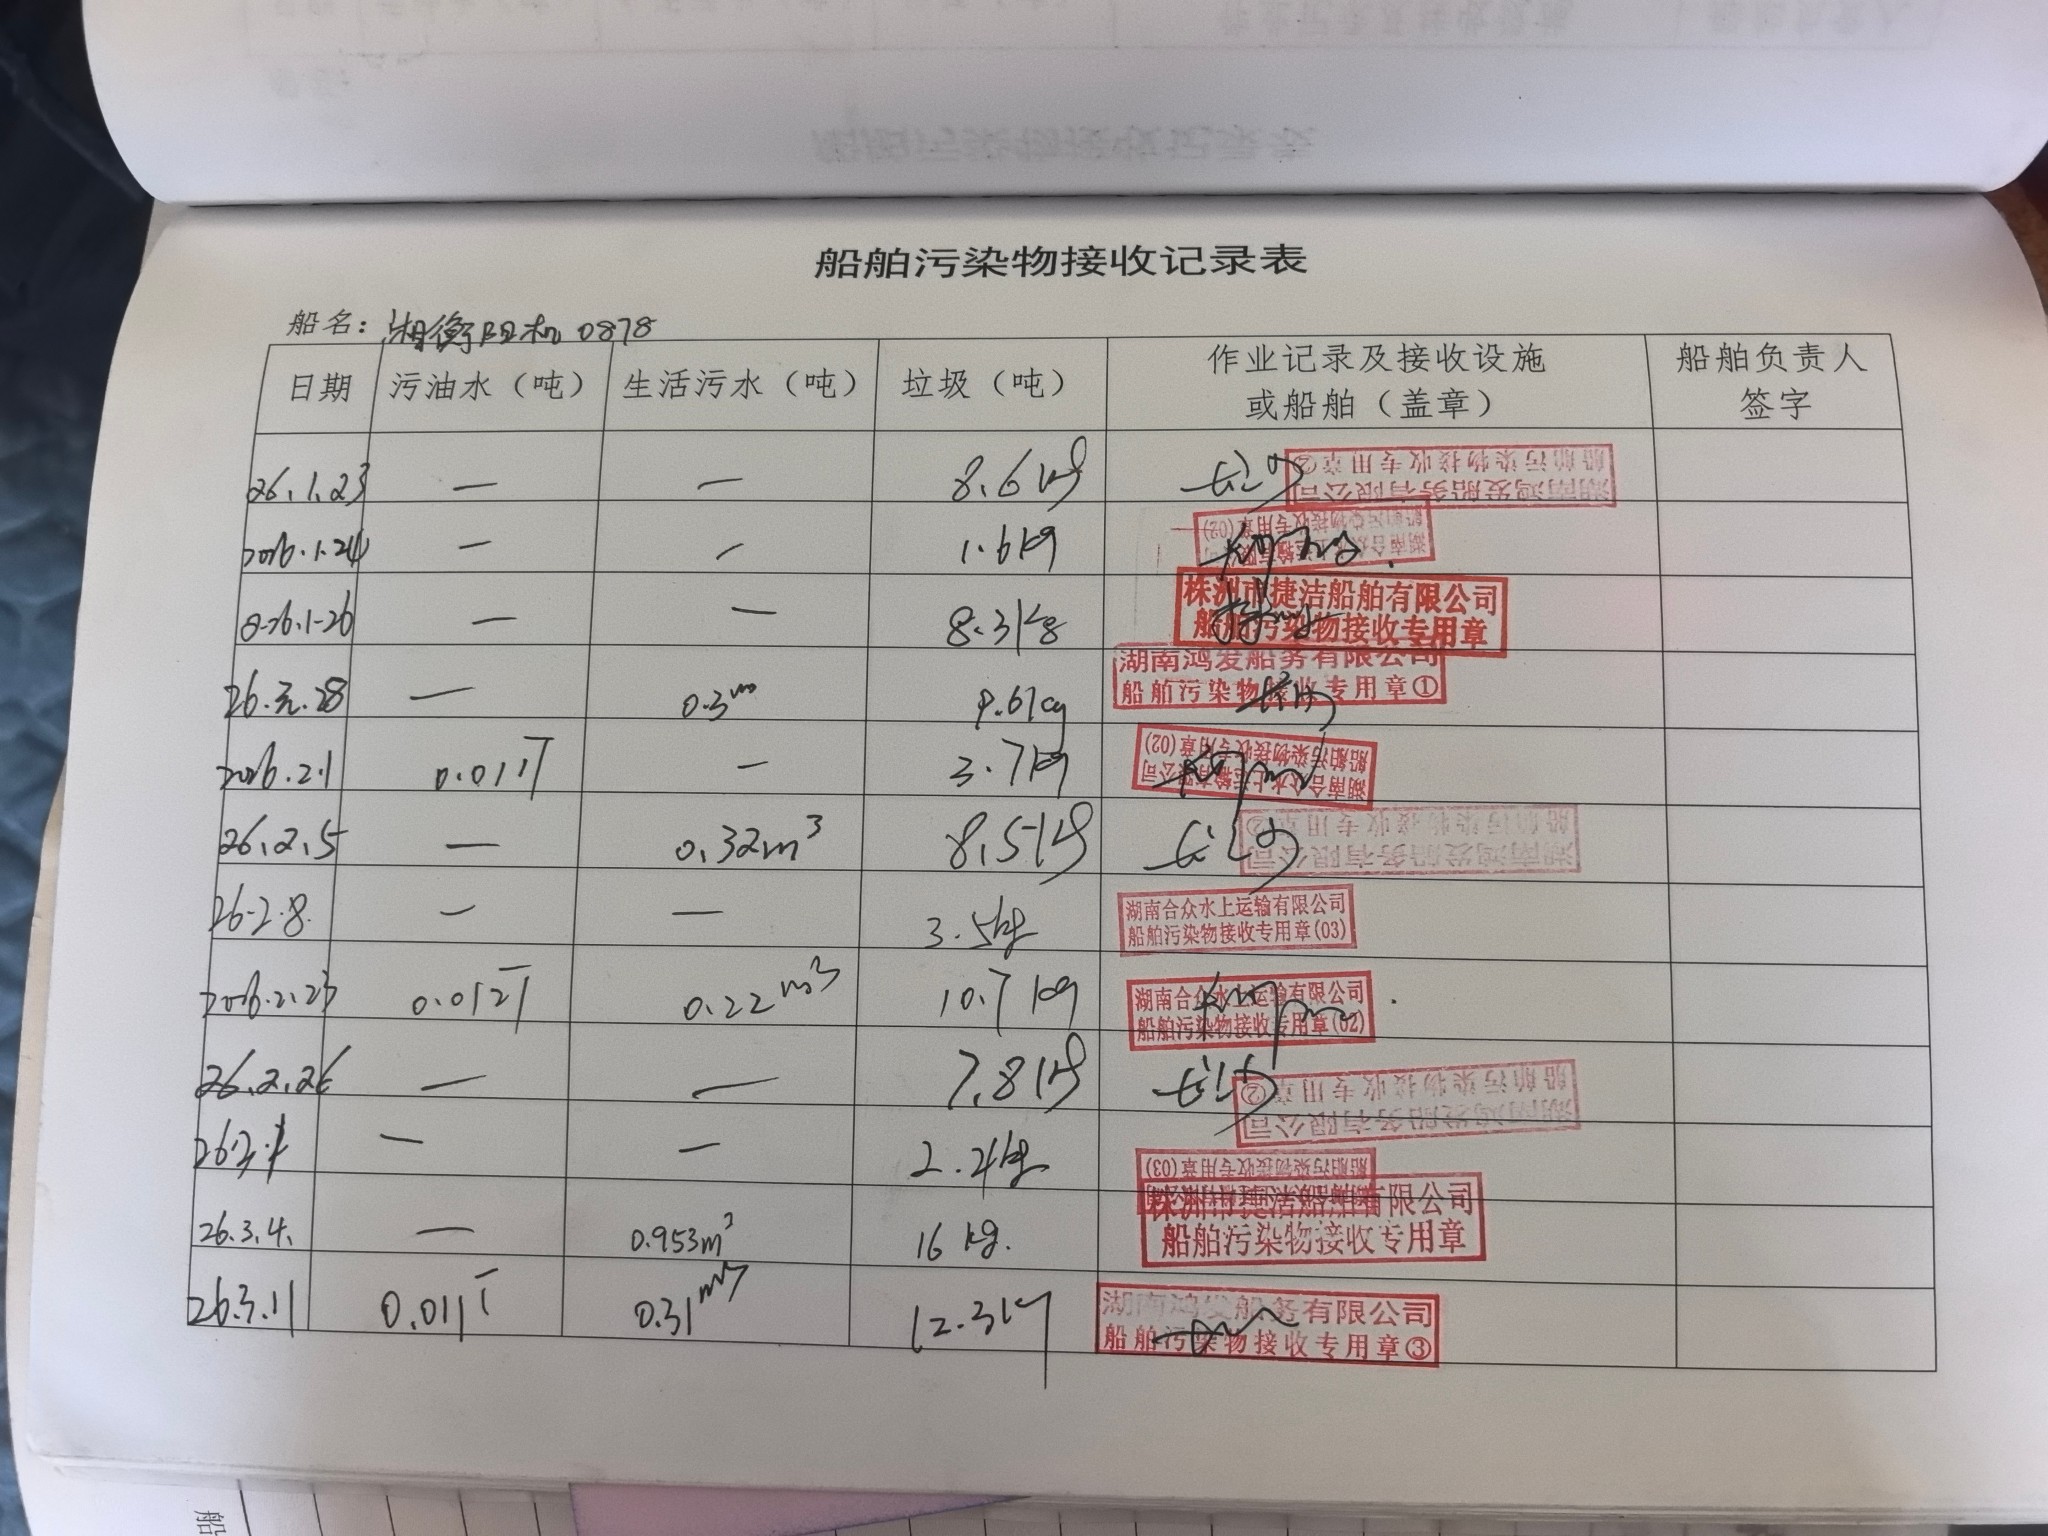 船舶污染物接收记录表
船名：湘衡阳机0878
日期 污油水（吨） 生活污水（吨） 垃圾（吨） 作业记录及接收设施或船舶（盖章） 船舶负责人签字
26.1.23 — — 8.6kg 湖南鸿发船务有限公司 船舶污染物接收专用章②
2026.1.24 — — 1.6kg 湖南合众水上运输有限公司 船舶污染物接收专用章(02)
1-26 — — 8.3Kg 株洲市捷洁船舶有限公司 船舶污染物接收专用章
26.元.28 — 0.3 9.6kg 湖南鸿发船务有限公司 船舶污染物接收专用章①
2026.2.1 0.01T — 3.7kg 湖南合众水上运输有限公司 船舶污染物接收专用章(02)
26.2.5 — 0.32m³ 8.5kg 湖南鸿发船务有限公司 船舶污染物接收专用章②
26-2.8. — — 3.5kg 湖南合众水上运输有限公司 船舶污染物接收专用章(03)
2026.2.23 0.012T 0.22m3 10.7kg 湖南合众水上运输有限公司 船舶污染物接收专用章(02)
26.2.26 — — 7.8kg 湖南鸿发船务有限公司 船舶污染物接收专用章②
— — 2.4kg 船舶污染物接收专用章(03)
26.3.4. — 0.953m³ 16kg. 株洲市捷洁船舶有限公司 船舶污染物接收专用章
26.3.11 0.011T 0.31m3 12.3kg 湖南鸿发船务有限公司 船舶污染物接收专用章③
船